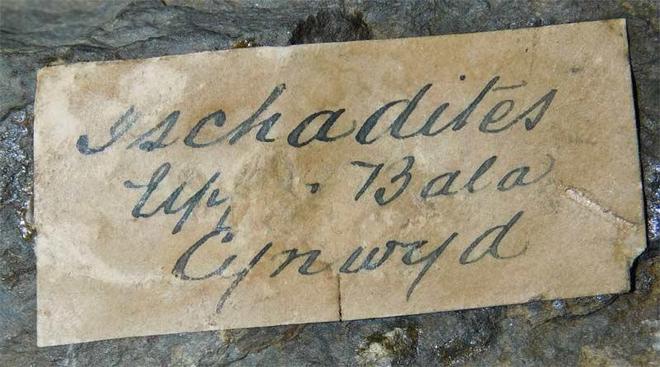 Ischadites
Up. Bala
Cynwyd